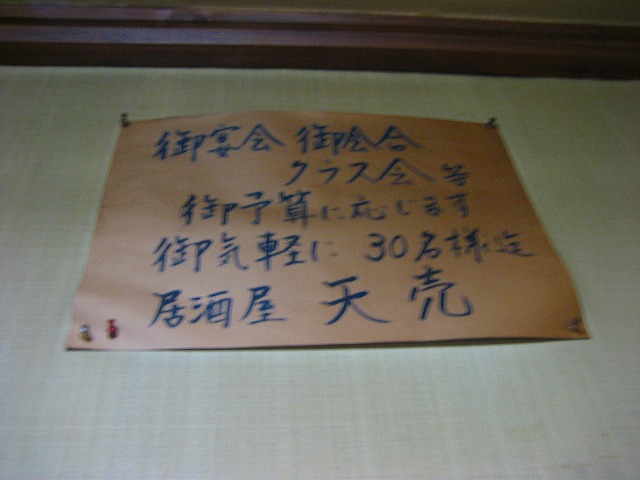 御宴会 御会合
クラス会 等
御予算に応じます
御気軽に 30名様迄
居酒屋 天売